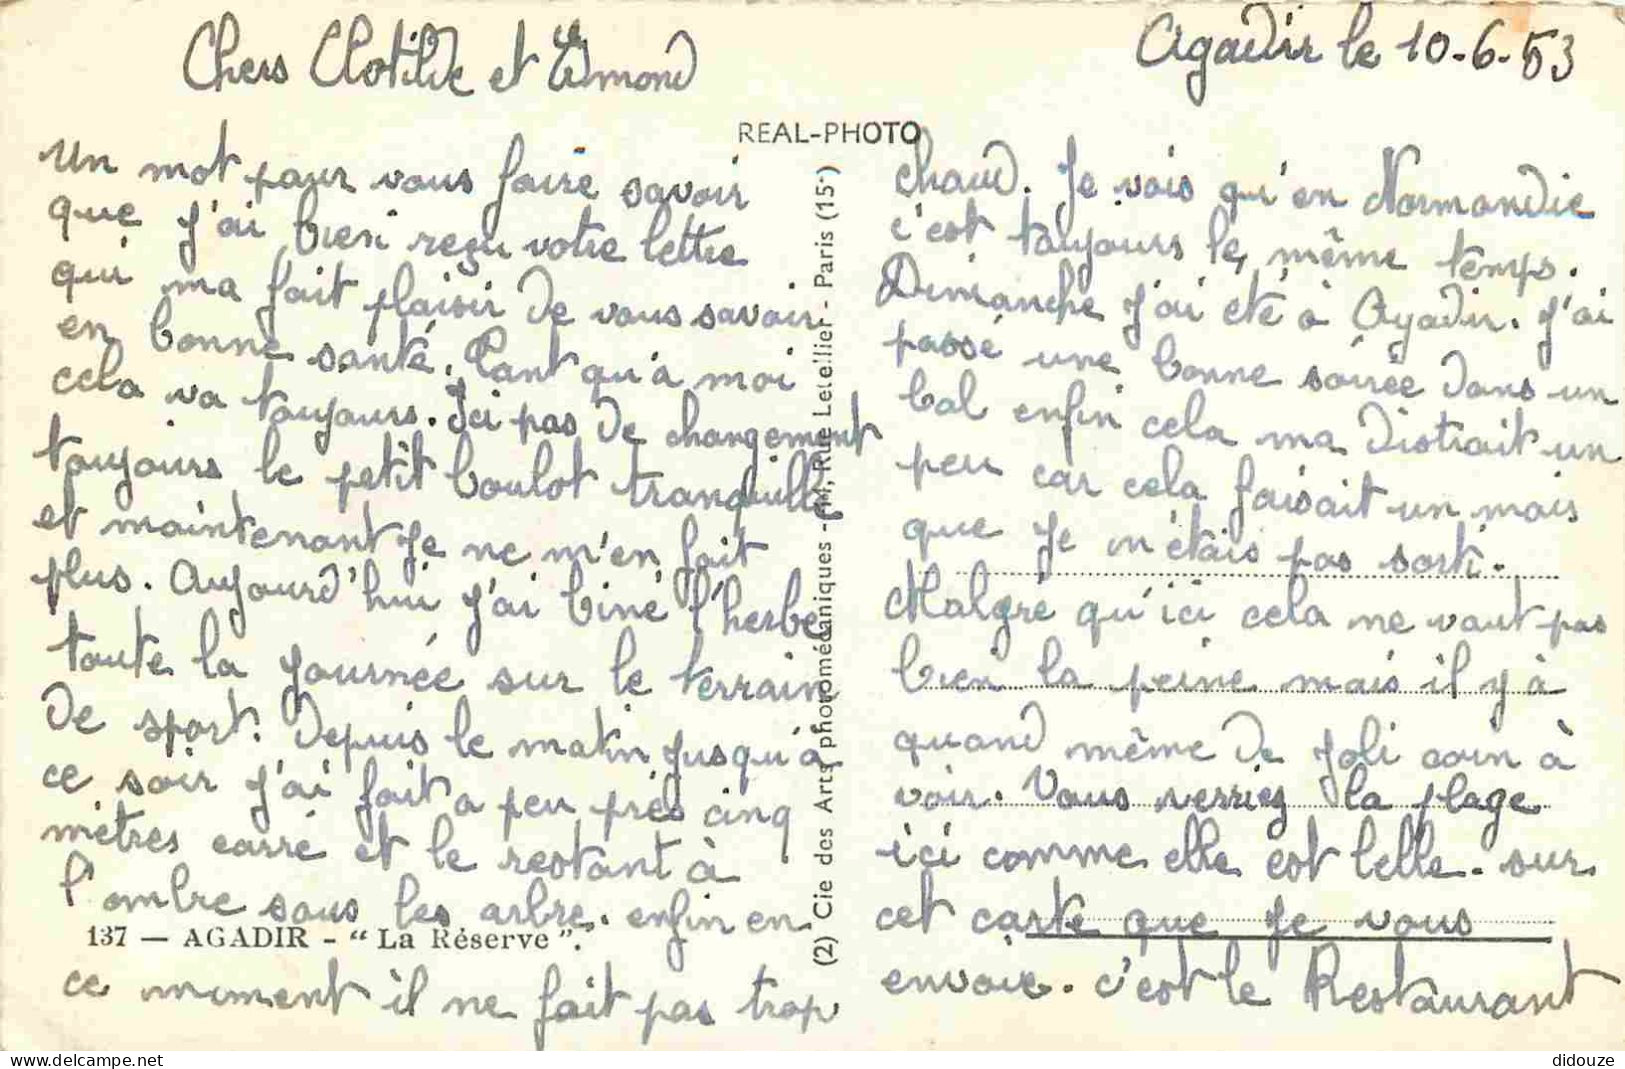 Chers Clotilde et Edmond
Agadir le 10-6-53
REAL-PHOTO
Un mot pour vous faire savoir
que j'ai bien reçu votre lettre
qui ma fait plaisir de vous savoir
en bonne santé. Tant qu'à moi
cela va toujours. Ici pas de changement
toujours le petit boulot tranquille
et maintenant je ne m'en fait
plus. Aujourd'hui j'ai biné l'herbe
toute la journée sur le terrain
de sport. Depuis le matin jusqu'à
ce soir j'ai fait a peu prés cinq
mètres carré et le restant à
l'ombre sous les arbre. enfin en
137 — AGADIR - “ La Réserve ”.
ce moment il ne fait pas trop
(2) Cie des Arts photomécaniques - Rue Letellier - Paris (15e)
chaud. Je vois qu'en Normandie
c'est toujours le même temps.
Dimanche j'ai été à Agadir. J'ai
passé une bonne soirée dans un
bal enfin cela ma distrait un
peu car cela faisait un mois
que je n'étais pas sorti.
Malgré qu'ici cela ne vaut pas
bien la peine mais il y à
quand même de joli coin à
voir. Vous verriez la plage
ici comme elle est belle. sur
cet carte que je vous
envoie. c'est le Restaurant
didouze